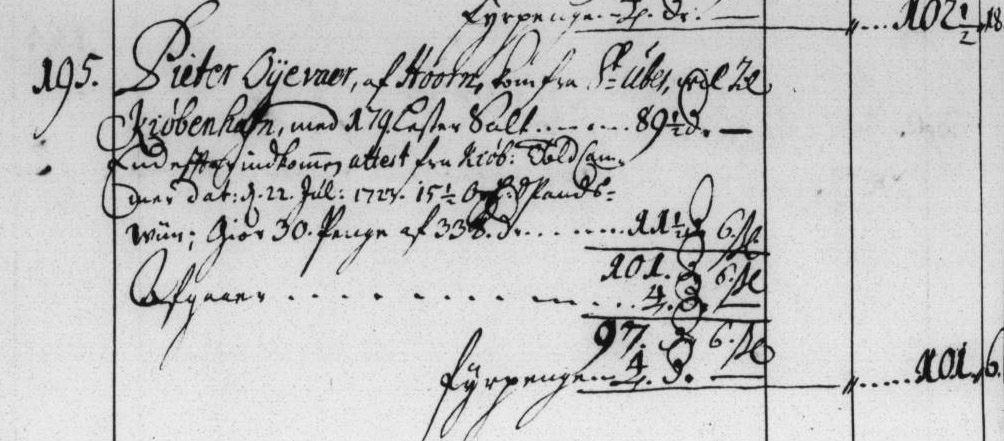 Fyrpenge - 4. d. — „.....102½ „18
195. Pieter Oÿevaer, af Hoorn, kom fra St: Übes, vil til
Kiøbenhafn, med 179. Lester Salt ........ 89½ d. —
End efter indkommen attest fra Kiøb: Told Cam-
mer dat: d. 22. Jül: 1727. 15½ Oxh: Spands-
wün; Giör 30. Penge af 338. d ........ 11½ d. 6.
101. d. 6.
Afgaaer ........ 4. d. —
97. d. 6.
Fÿrpenge .. 4. d. — „.....101. „6.